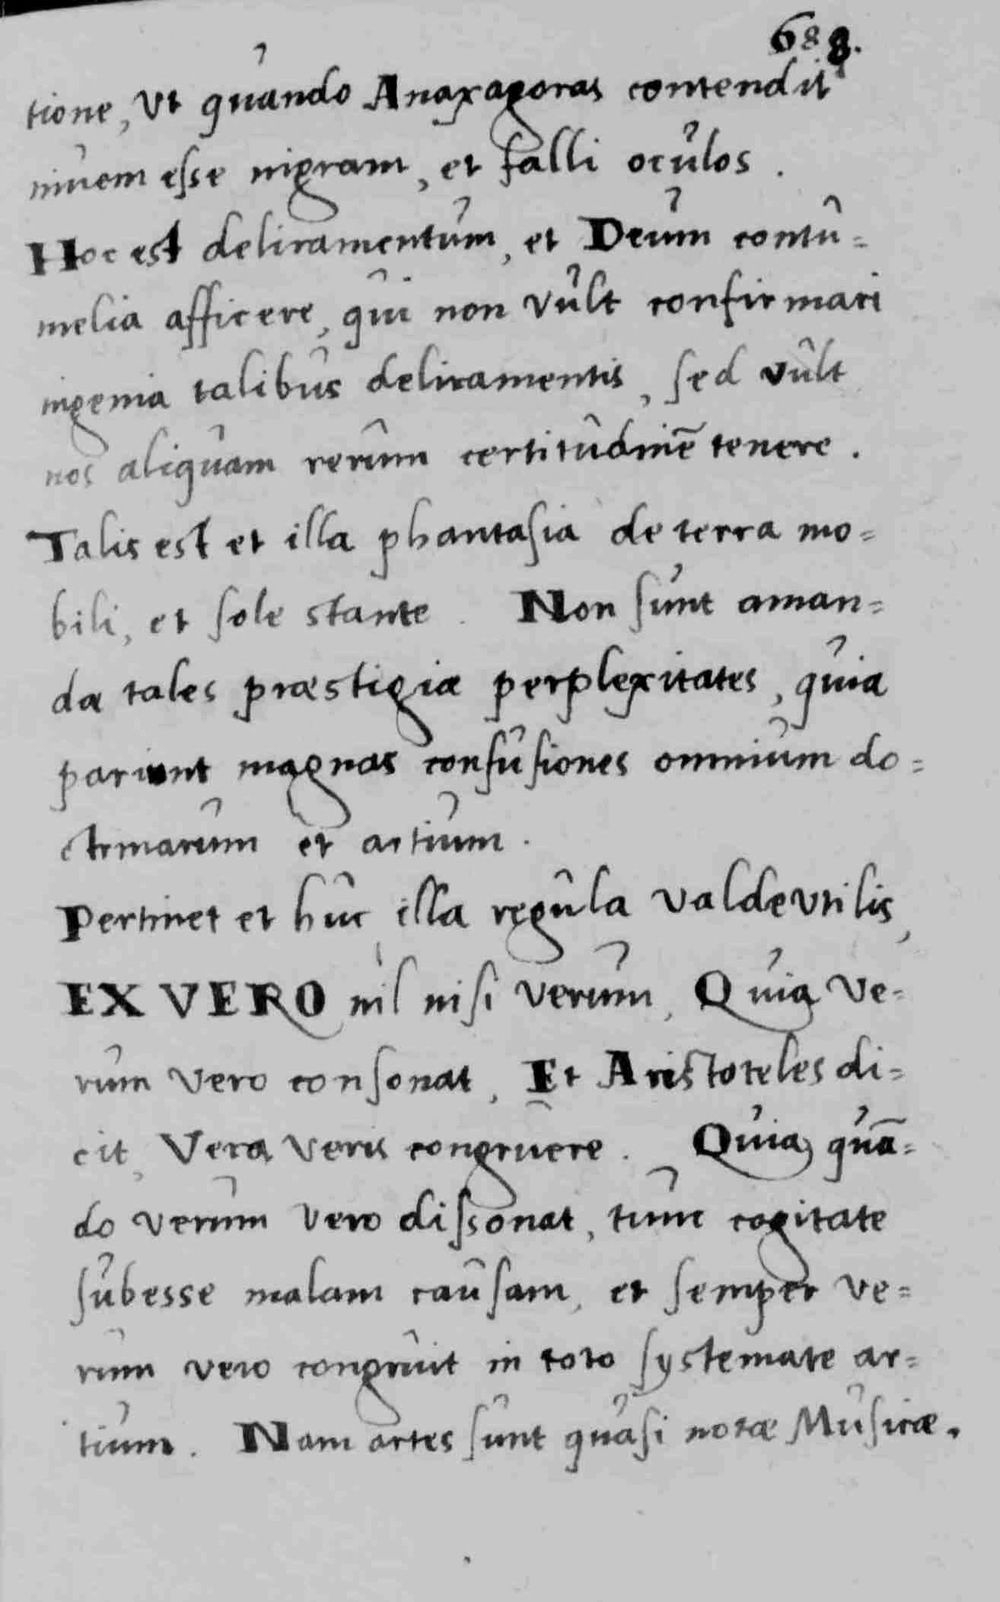 688.
tione, Ut quando Anaxagoras contendit
nivem esse nigram, et falli oculos.
Hoc est deliramentum, et Deum contu=
melia afficere, qui non vult confirmari
ingenia talibus deliramentis, sed vult
nos aliquam rerum certitudinē tenere.
Talis est et illa phantasia de terra mo=
bili, et sole stante. Non sunt aman=
dæ tales præstigiæ perplexitates, quia
pariunt magnas confusiones omnium do=
ctrinarum et artium.
Pertinet et huc illa regula valde utilis,
EX VERO nil nisi verum, Quia ve=
rum vero consonat, Et Aristoteles di=
cit, Vera veris congruere. Quia quā=
do verum vero dissonat, tunc cogitate
subesse malam causam, et semper ve=
rum vero congruit in toto systemate ar=
tium. Nam artes sunt quasi notæ Musicæ.